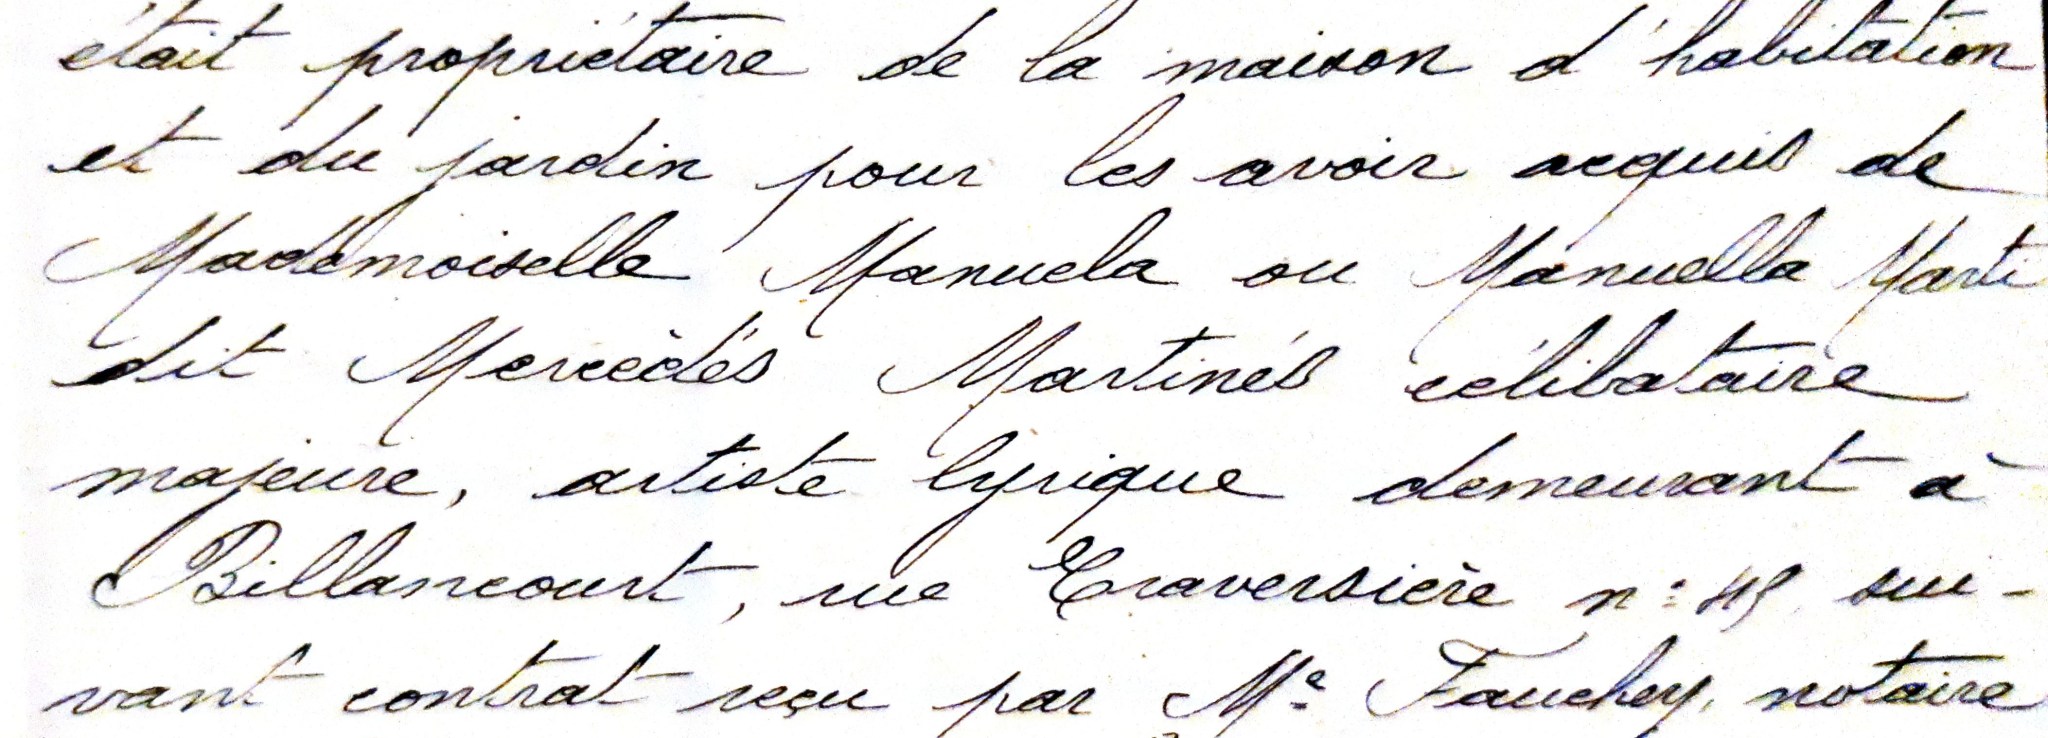 était propriétaire de la maison d'habitation
et du jardin pour les avoir acquis de
Mademoiselle Manuela ou Manuella Marti
dit Mercédès Martinés célibataire
majeure, artiste lyrique demeurant à
Billancourt, rue Traversière n° sui-
vant contrat reçu par Me Fauchey, notaire